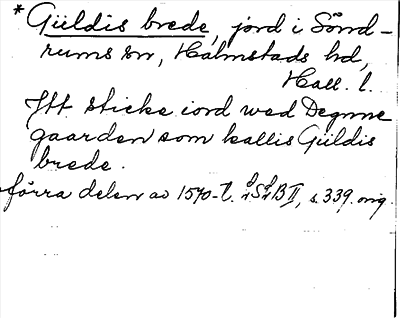 * Güldis brede, jord i Sönd-
rums sn, Halmstads hd,
Hall. l.
Itt sticke iord wed Degnne
gaarden som kallis Güldis
brede.
förra delen av 1570-t. SB II, s. 339. orig.